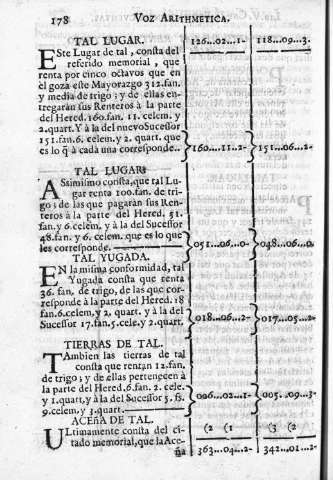 178 VOZ ARITHMETICA.
TAL LUGAR. 126...02...1- 118...09...3.
ESte Lugar de tal, consta del
referido memorial, que
renta por cinco octavos que en
el goza este Mayorazgo 312.fan.
y media de trigo; y de ellas en-
tregarán sus Renteros à la parte
del Hered. 160.fan. 11. celem. y
2.quart. Y à la del nuevo Sucessor
151.fan. 6. celem. y 2. quart. que
es lo q̃ à cada una corresponde.. 160...11...2- 151...06...2-
TAL LUGAR.
ASsimismo consta, que tal Lu-
gar renta 100.fan. de tri-
go; de las que pagarán sus Ren-
teros à la parte del Hered. 51.
fan. y 6.celem. y à la del Sucessor
48.fan. y 6. celem. que es lo que
les corresponde. 051...06...0- 048...06...0-
TAL YUGADA.
EN la misma conformidad, tal
Yugada consta que renta
36. fan. de trigo, de las que cor-
responde à la parte del Hered. 18
fan.6.celem.y 2. quart. y à la del
Sucessor 17.fan.5.cele.y 2.quart. 018...06...2- 017...05...2-
TIERRAS DE TAL.
TAmbien las tierras de tal
consta que rentan 12.fan.
de trigo; y de ellas pertenecen à
la parte del Hered.6.fan. 2. cele.
y 1.quart, y à la del Sucessor 5. fã.
9.celem. y 3.quart. 006...02...1- 005...09...3-
ACEñA DE TAL. (2 (1 (3 (2
ULtimamente consta del ci-
tado memorial, que la Ace- 363...04...2- 342...01...2-
ña